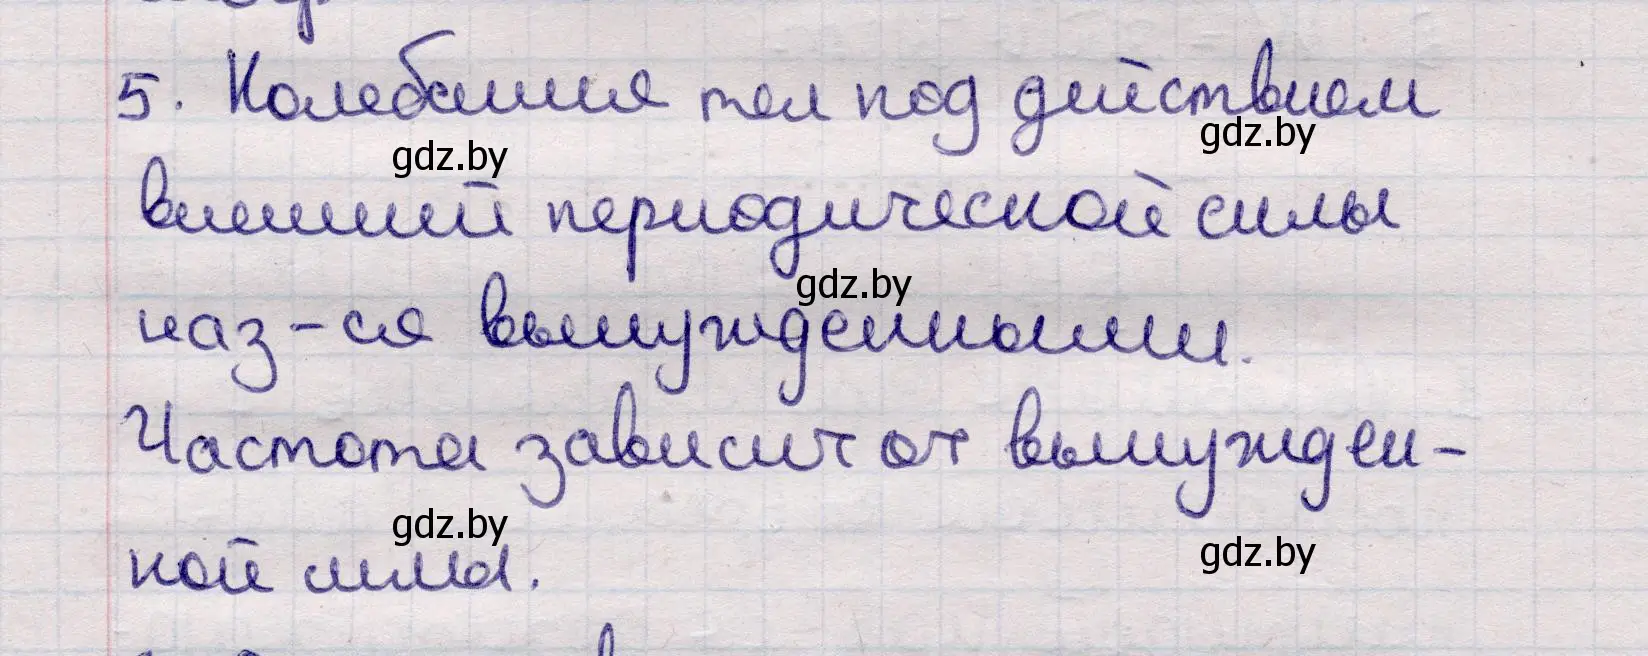 5. Колебания тел под действием
внешней периодической силы
наз-ся вынужденными.
Частота зависит от вынужден-
ной силы.
gdz.by
gdz.by
gdz.by
gdz.by
gdz.by